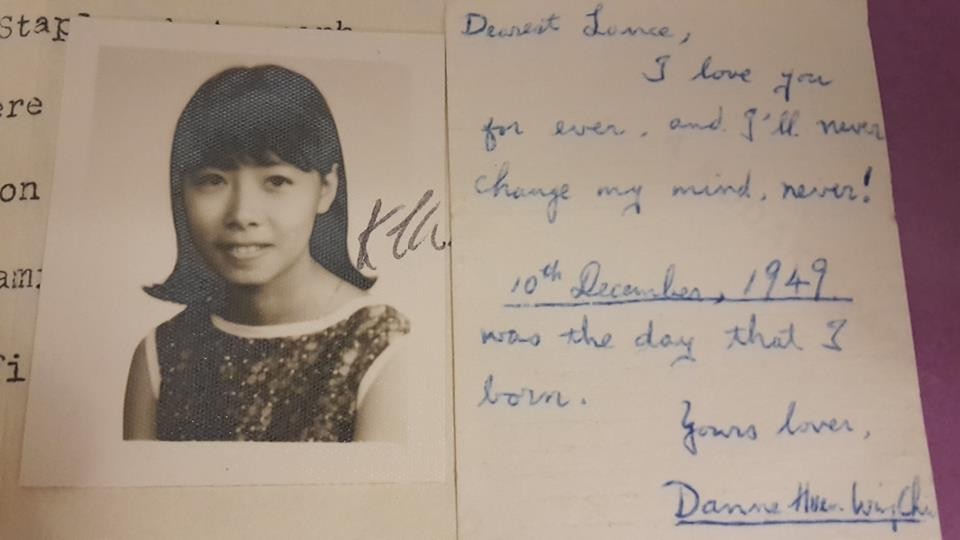 ere
on
Dearest Lance,
I love you
for ever, and I'll never
change my mind, never!
10th December, 1949
was the day that I
born.
Yours lover,
Danne